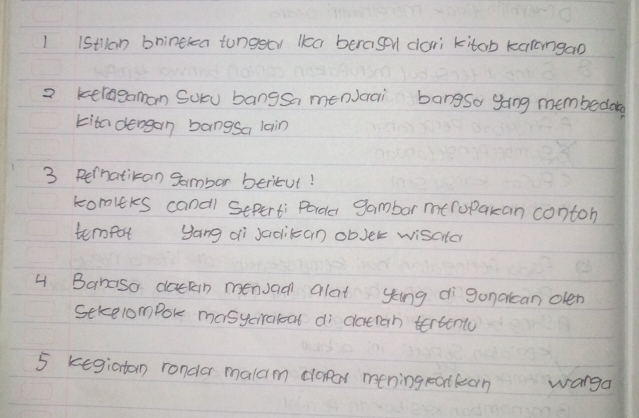 1 Istilah bhineka tunggal Ika berasal dari kitab karangan
2 keragaman suku bangsa menjadi bangsa yang membedakan
kita dengan bangsa lain
3 Perhatikan gambar berikut!
kompleks candi seperti pada gambar merupakan contoh
tempat yang di jadikan objek wisata
4 Bahasa daerah menjadi alat yang di gunakan oleh
sekelompok masyarakat di daerah tertentu
5 kegiatan ronda malam dapat meningkatkan warga